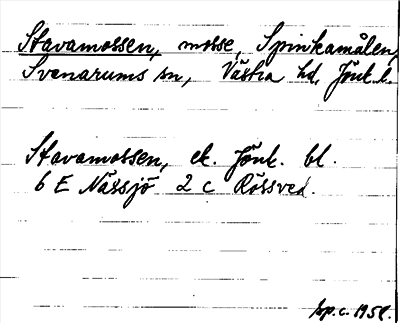 Stavamossen, mosse, Spinkamålen,
Svenarums sn, Västra hd, Jönk. l.
Stavamossen, ek. Jönk. bl.
6 E Nässjö 2 c Rössved.
sp.c. 1958.